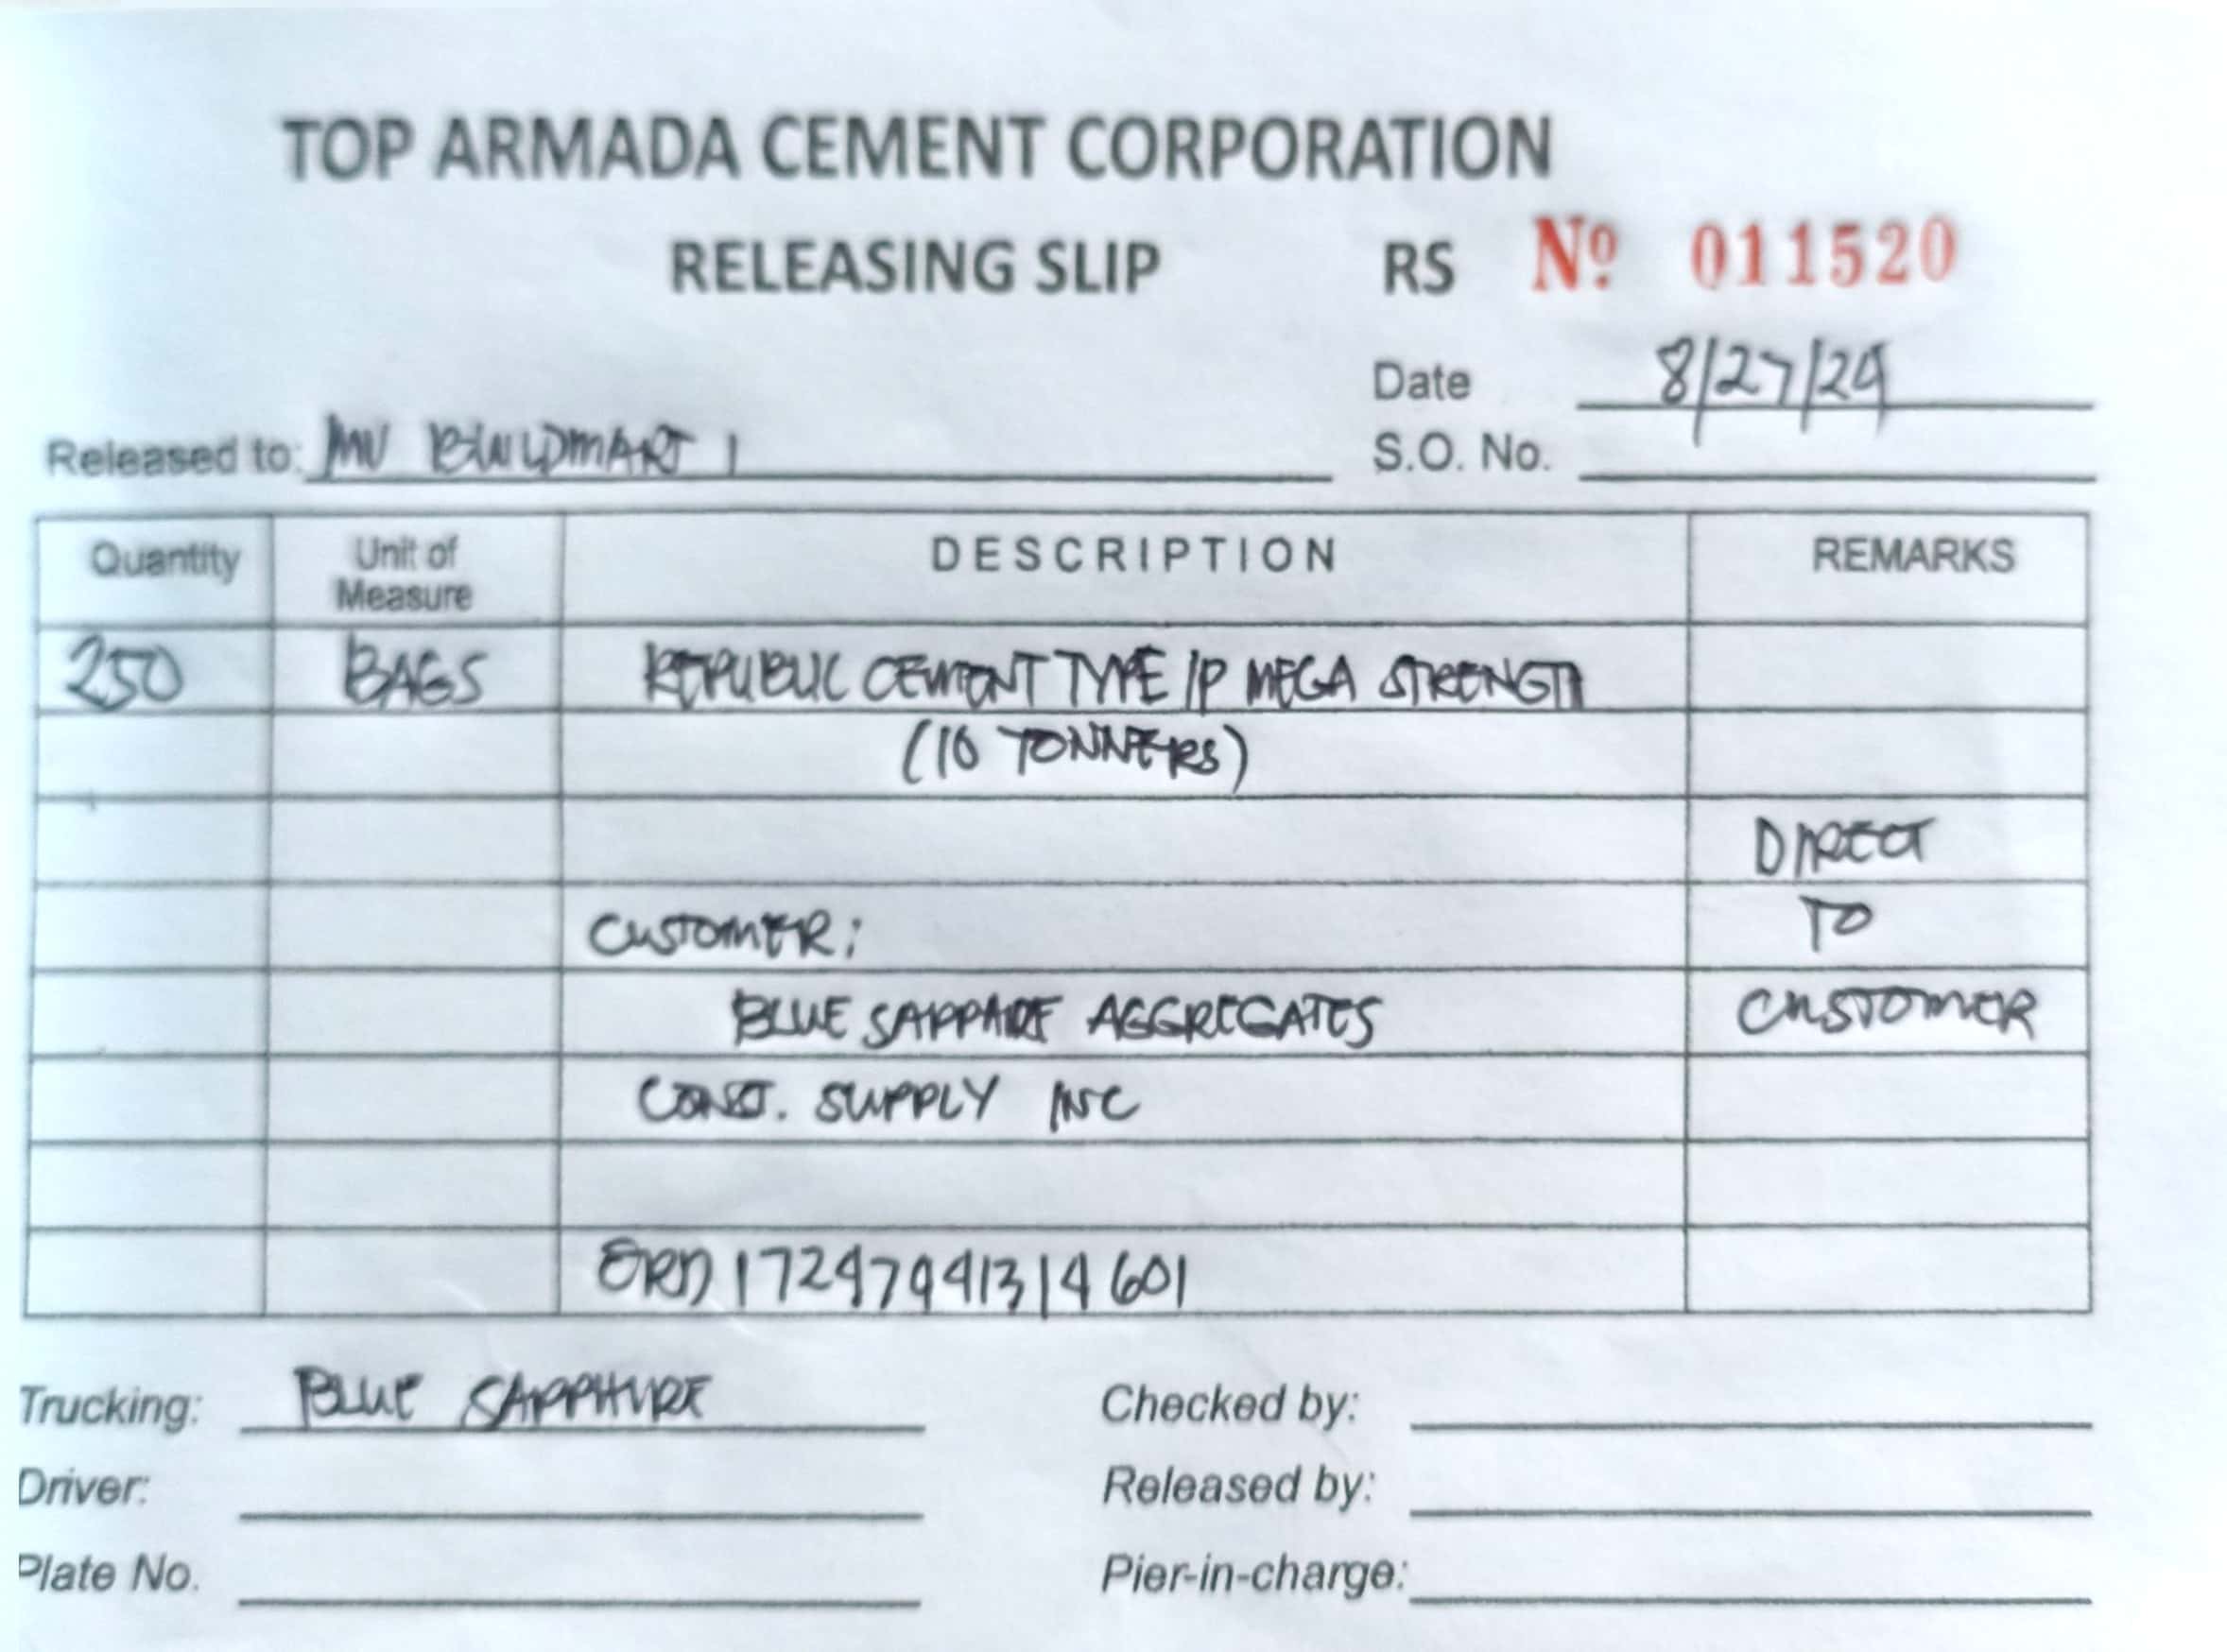 TOP ARMADA CEMENT CORPORATION
RELEASING SLIP RS Nº 011520
Date 8/27/24
Released to: MV BUILDMART 1
S.O. No.
Quantity Unit of Measure DESCRIPTION REMARKS
250 BAGS REPUBLIC CEMENT TYPE 1P MEGA STRENGTH
(10 TONNERS)
DIRECT
CUSTOMER: TO
BLUE SAPPHIRE AGGREGATES CUSTOMER
CONST. SUPPLY INC
ORD 17247941314601
Trucking: BLUE SAPPHIRE Checked by:
Driver: Released by:
Plate No. Pier-in-charge: